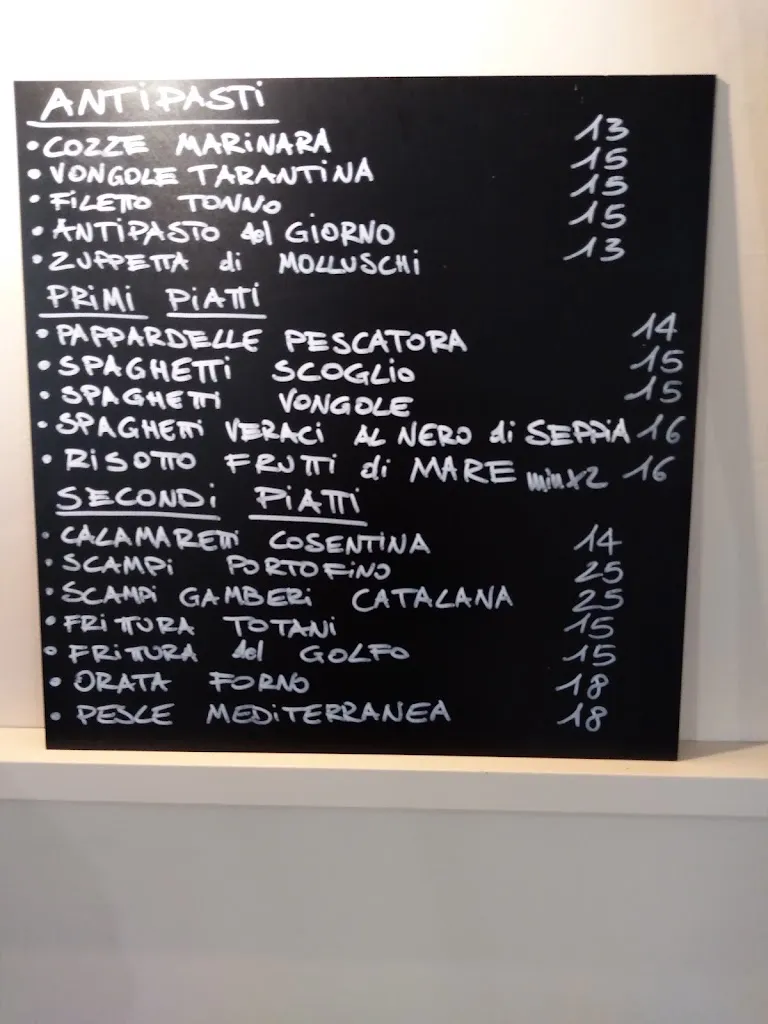 ANTIPASTI
• COZZE MARINARA 13
• VONGOLE TARANTINA 15
• FILETTO TONNO 15
• ANTIPASTO del GIORNO 15
• ZUPPETTA di MOLLUSCHI 13
PRIMI PIATTI
• PAPPARDELLE PESCATORA 14
• SPAGHETTI SCOGLIO 15
• SPAGHETTI VONGOLE 15
• SPAGHETTI VERACI AL NERO di SEPPIA 16
• RISOTTO FRUTTI di MARE min x2 16
SECONDI PIATTI
• CALAMARETTI COSENTINA 14
• SCAMPI PORTOFINO 25
• SCAMPI GAMBERI CATALANA 25
• FRITTURA TOTANI 15
• FRITTURA del GOLFO 15
• ORATA FORNO 18
• PESCE MEDITERRANEA 18